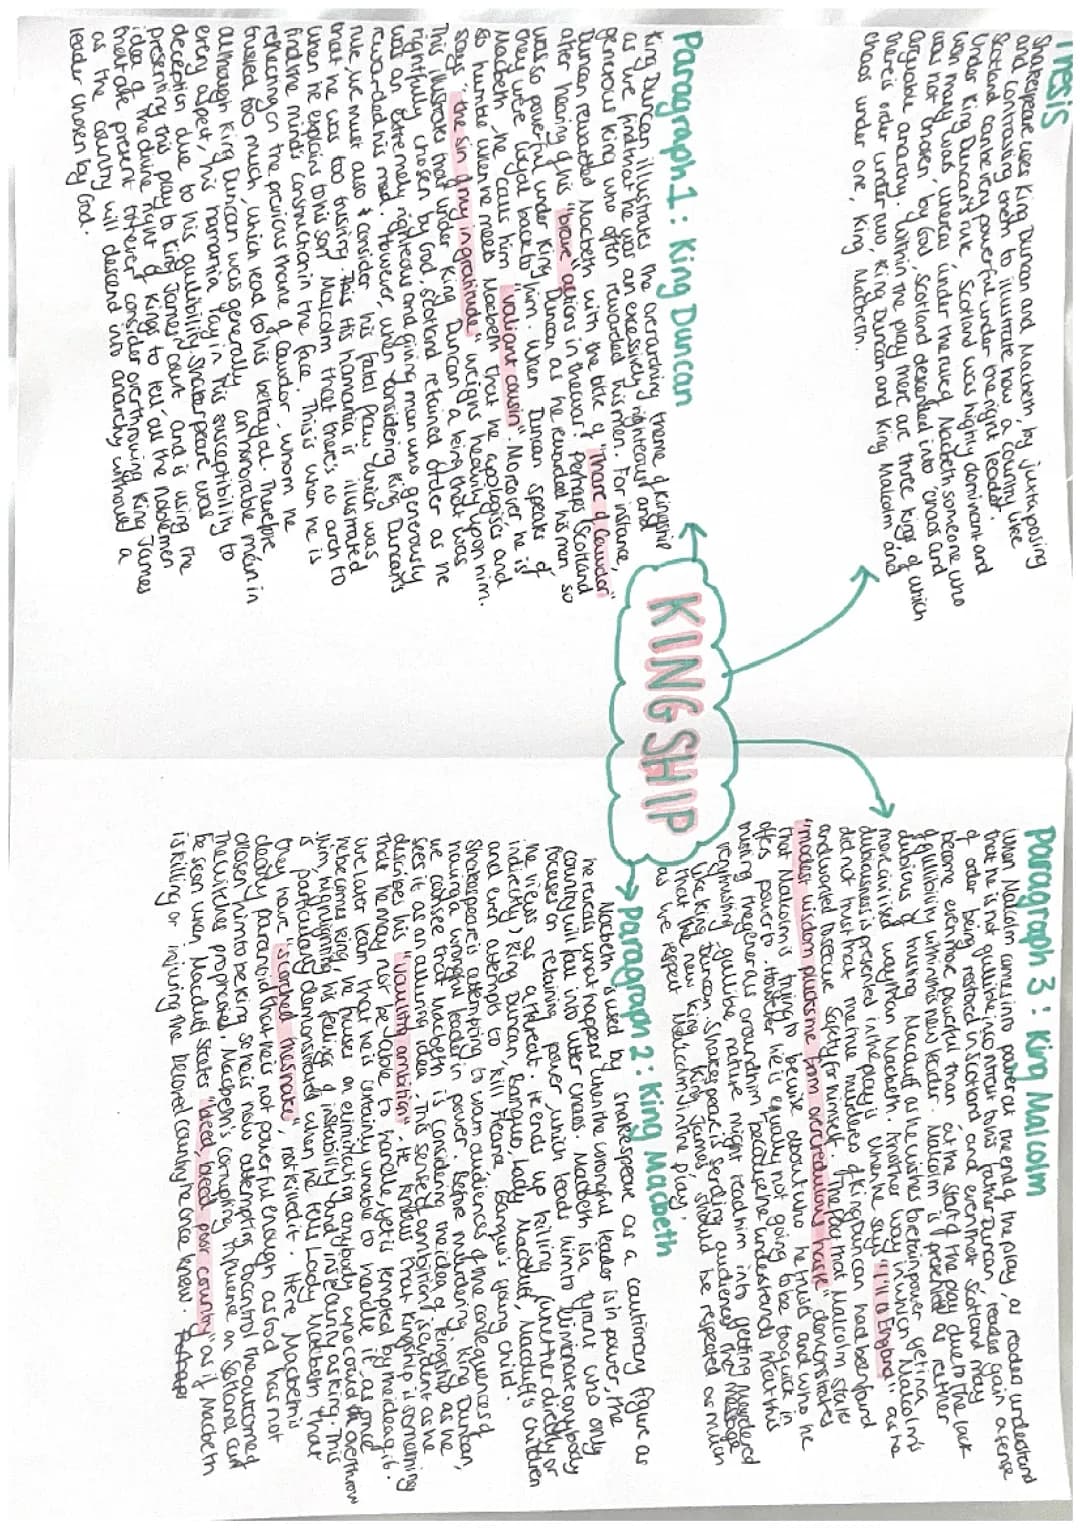 Thesis
Shakespeare uses King Duncan and Macbeth, by juxtaposing
and contrasting them to illustrate how a country like
Scotland can be very powerful under the right leader.
Under King Duncan's rule, Scotland was highly dominant and
won many wars whereas under the rule of Macbeth someone who
was not chosen by God, Scotland descended into chaos and
arguable anarchy. Within the play there are three kings of which
there is order under two, King Duncan and King Malcolm, and
chaos under one, King Macbeth.
KINGSHIP
Paragraph 1: King Duncan
King Duncan illustrates the overarching theme of kingship
as we find that he was an excessively righteous and
generous king who often rewarded his men. For instance,
Duncan rewarded Macbeth with the title of "Thane of Cawdor"
after hearing of his "brave" actions in the war! Perhaps Scotland
was so powerful under King Duncan as he rewarded his men so
they were loyal back to him. When Duncan speaks of
Macbeth, he calls him "valiant cousin". Moreover, he is
so humble when he meets Macbeth that he apologises and
says "the sin of my ingratitude" weighs heavily upon him.
This illustrates that under King Duncan, a king that was
rightfully chosen by God, Scotland retained order as he
was an extremely righteous and giving man who generously
rewarded his men. However, when considering King Duncan's
rule, we must also consider his fatal flaw which was
that he was too trusting. This His hamartia is illustrated
when he explains to his son Malcolm that there's no art to
find the mind's construction in the face. This is when he is
reflecting on the previous thane of Cawdor, whom he
trusted too much, which lead to his betrayal. Therefore,
although King Duncan was generally an honorable man in
every aspect, his hamartia lay in his susceptibility to
deception due to his gullibility. Shakespeare was
presenting this play to King James' court and is using the
idea of 'the divine right of kings' to tell all the noblemen
that are present to never consider overthrowing King James
as the country will descend into anarchy without a
leader chosen by God.
Paragraph 2: King Macbeth
Macbeth is used by Shakespeare as a cautionary figure as
he reveals what happens when the wrongful leader is in power, the
country will fall into utter chaos. Macbeth is a tyrant who only
focuses on retaining power, which leads him to eliminate anybody
he views as a threat. He ends up killing (whether directly or
indirectly) King Duncan, Banquo, Lady Macduff, Macduff's children
and even attempts to kill Fleance, Banquo's young child.
Shakespeare is attempting to warn audiences of the consequences of
having a wrongful leader in power. Before murdering King Duncan,
we can see that Macbeth is considering the idea of kingship as he
sees it as an alluring idea. This sense of ambition is evident as he
describes his "vaulting ambition". He knows that kingship is something
that he may not be able to handle, yet is tempted by the idea of it.
We later learn that he is certainly unable to handle it as once
he becomes king, he muses on eliminating anybody who could overthrow
him, highlighting his feelings of instability and insecurity as king. This
is particularly demonstrated when he tells Lady Macbeth that
they have "scorched the snake", not killed it. Here Macbeth is
clearly paranoid that he is not powerful enough as God has not
chosen him to be king so he is now attempting to control the outcome of
the witches' prophecies. Macbeth's corrupting influence on Scotland can
be seen when Macduff states "bleed, bleed poor country" as if Macbeth
is killing or injuring the beloved country he once knew.
Paragraph 3: King Malcolm
When Malcolm comes into power at the end of the play, as readers understand
that he is not gullible, in contrast to his father Duncan, readers gain a sense
of order being restored in Scotland and even that Scotland may
become even more powerful than at the start of the play due to the lack
of gullibility within his new leader. Malcolm is presented as rather
dubious of trusting Macduff as he wishes to retain power yet in a
more civilised way than Macbeth. Another way in which Malcolm's
dubiousness is presented in the play is when he says "I'll to England" as he
did not trust that the true murderers of King Duncan had been found
and wanted to secure safety for himself. The fact that Malcolm states
"modest wisdom plucks me from overcredulous haste" demonstrates
that Malcolm is trying to be wise about who he trusts and who he
offers power to. However he is equally not going to be too quick in
trusting the generous around him because he understands that this
very trusting, gullible, nature might lead him into getting murdered
like King Duncan. Shakespeare is sending audiences the message
that the new king, King James, should be respected as much
as we respect Malcolm in the play.